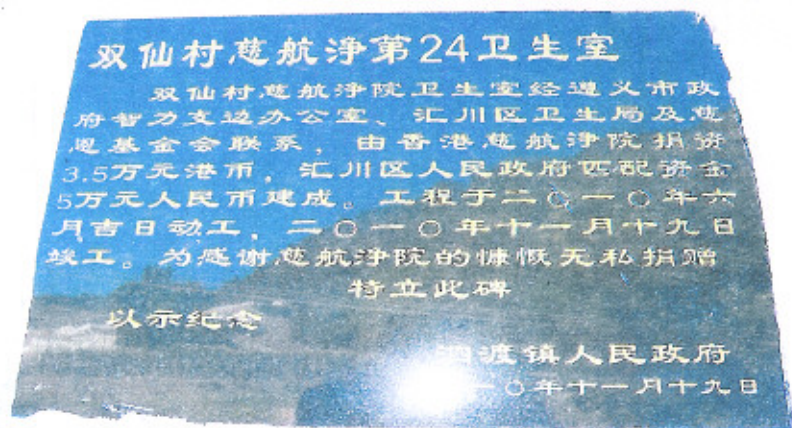 双仙村慈航净第24卫生室
双仙村慈航净院卫生室经遵义市政
府智力支边办公室、汇川区卫生局及慈
恩基金会联系，由香港慈航净院捐资
3.5万元港币，汇川区人民政府匹配资金
5万元人民币建成。工程于二〇一〇年六
月吉日动工，二〇一〇年十一月十九日
竣工。为感谢慈航净院的慷慨无私捐赠
特立此碑
以示纪念
泗渡镇人民政府
一〇年十一月十九日